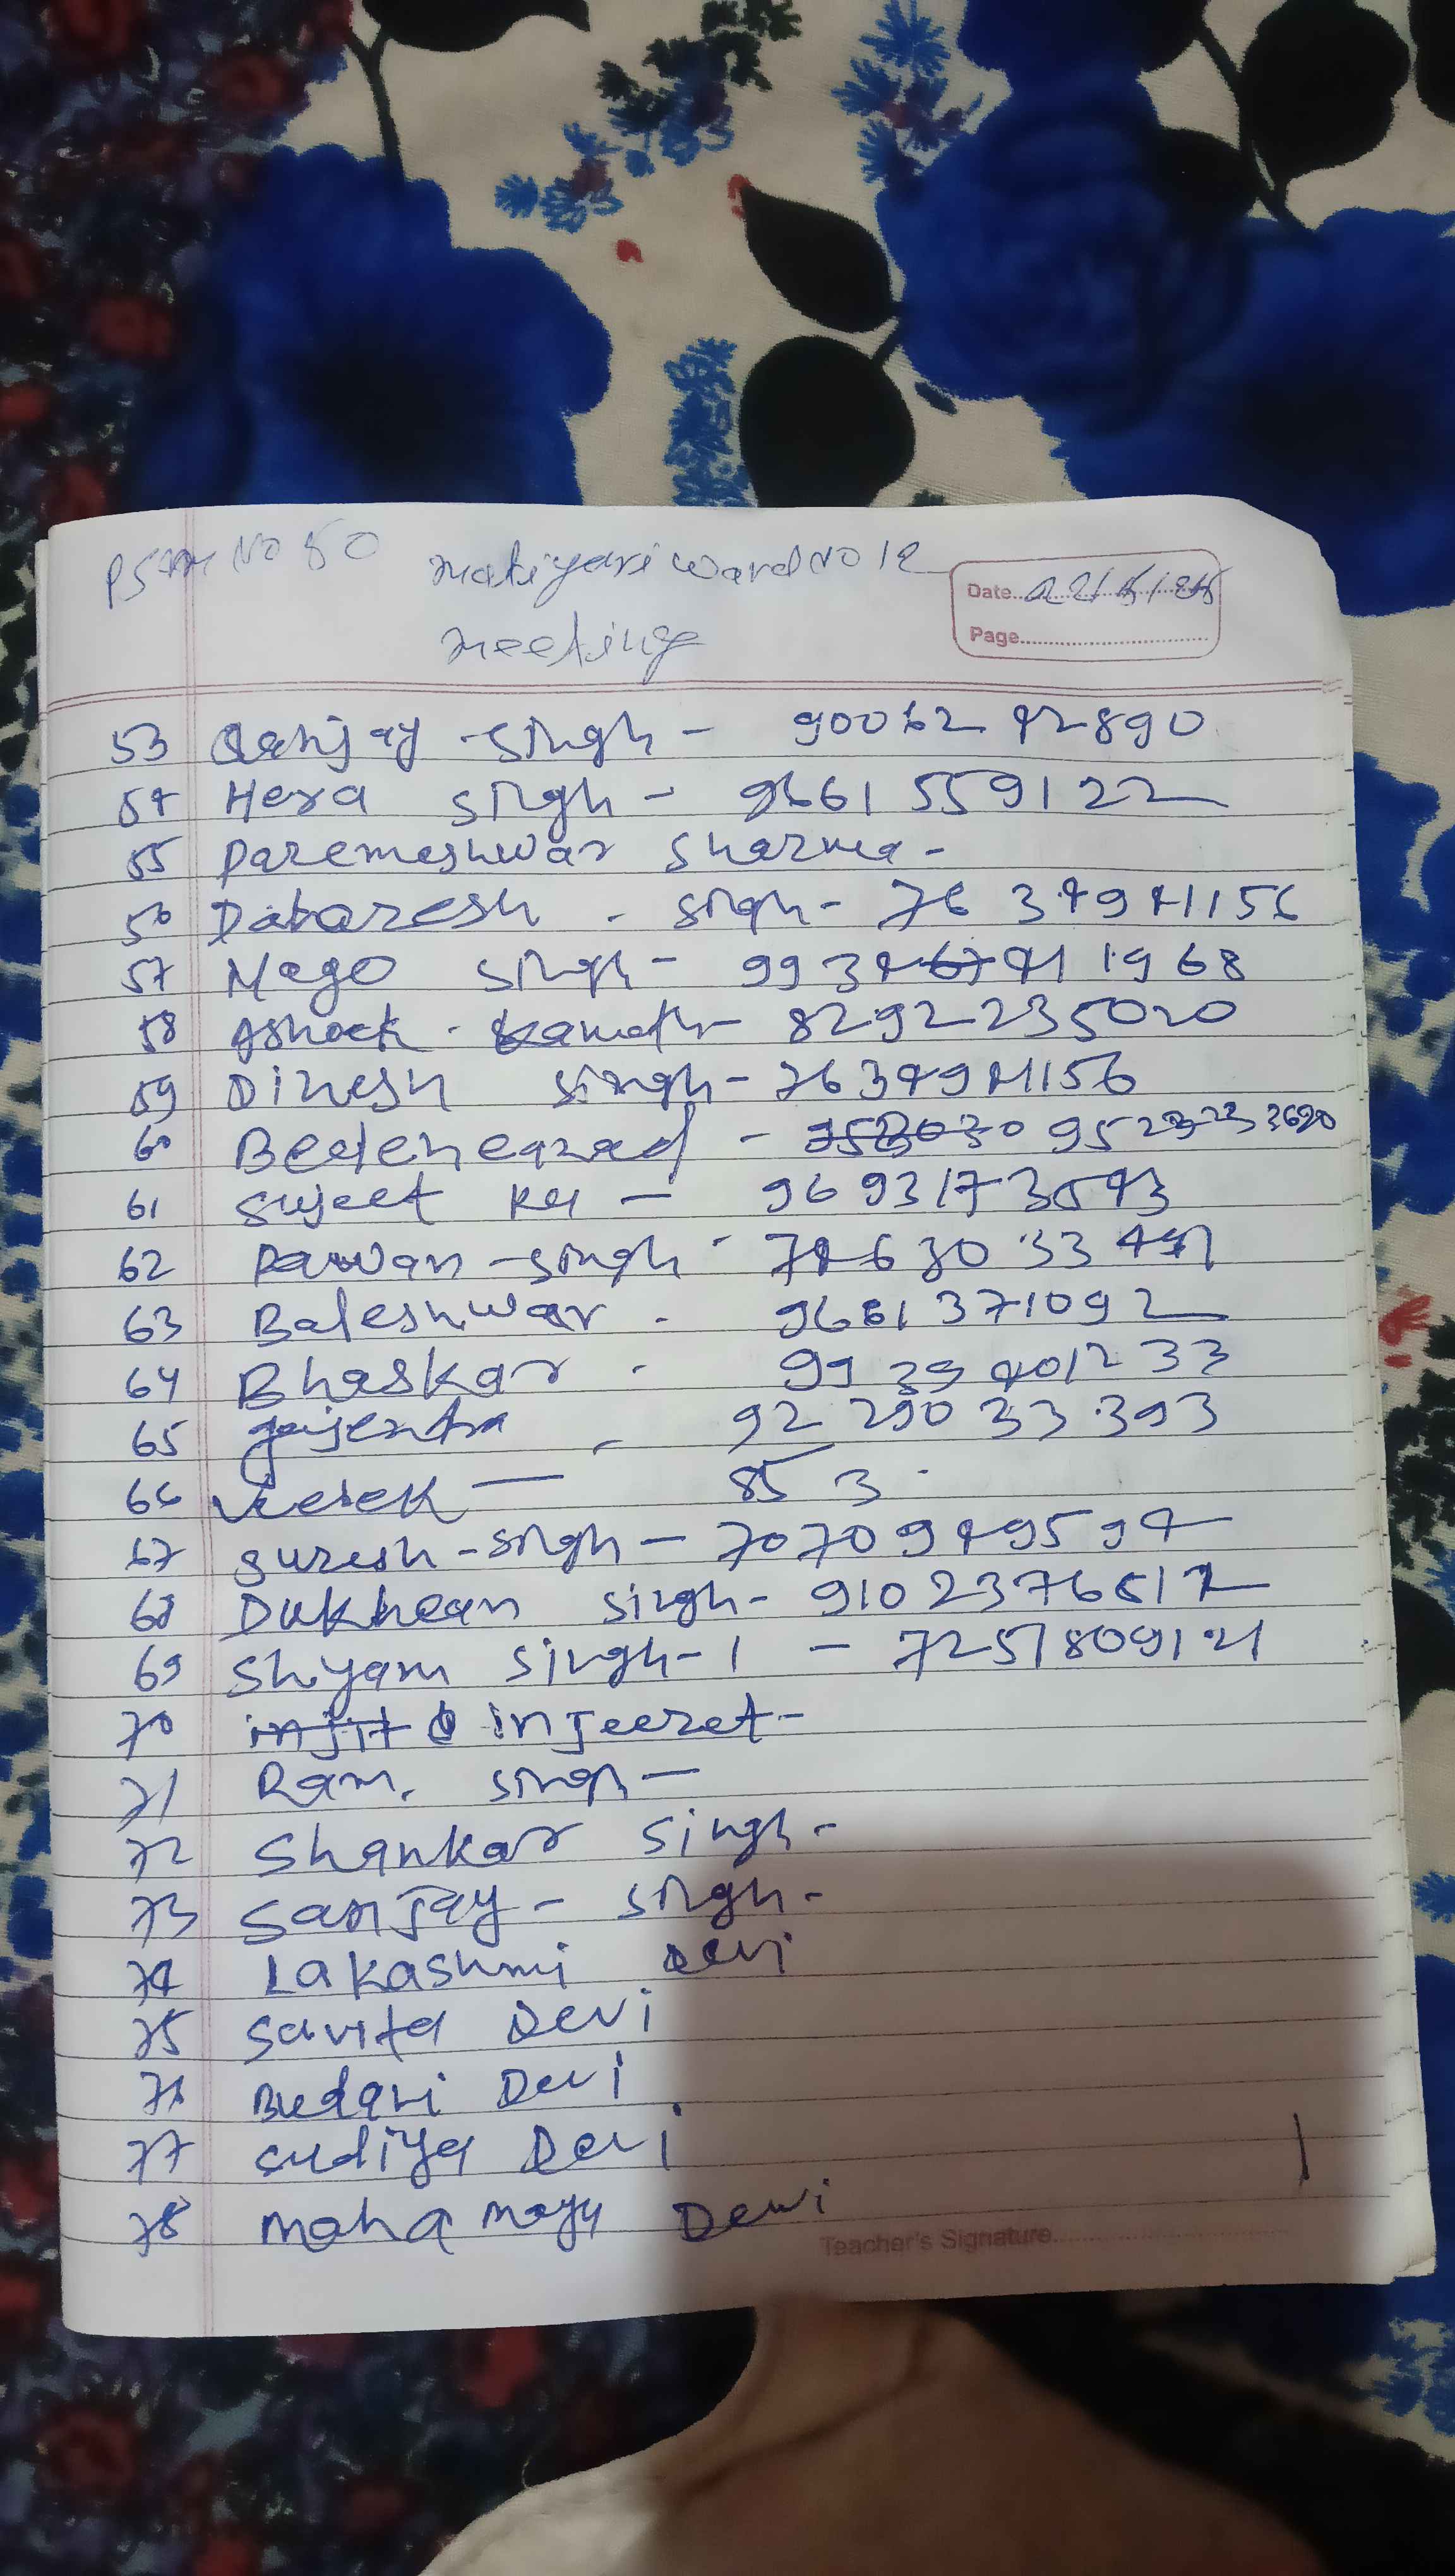 No 50 matiyari ward no 12
Date 22/5/25
meeting
Page
53 Sanjay singh - 9006242890
54 Hera singh - 9661559122
55 Paremeshwar Sharma -
56 Dabaresh - singh - 7634941156
57 Nago singh - 9934 411968
58 Ashock - Kamath - 8292235020
59 Dinesh singh - 7634941156
60 -
61 Sujeet - 9693173543
62 Pawan - singh - 
63 Baleshwar - 9661371092
64 Bhaskar - 9939401233
65 gajendra - 9229033393
66 - 853
67 Suresh - singh - 7070949594
68 Dukhean singh -
69 Shyam singh - 1 - 7257809121
70 injeeret -
71 Ram. singh -
72 Shankar singh -
73 Sanjay - singh -
74 Lakashmi Devi
75 Savita Devi
76 Budani Devi
77 Sudiya Devi
78 Maha maya Dewi
Teacher's Signature